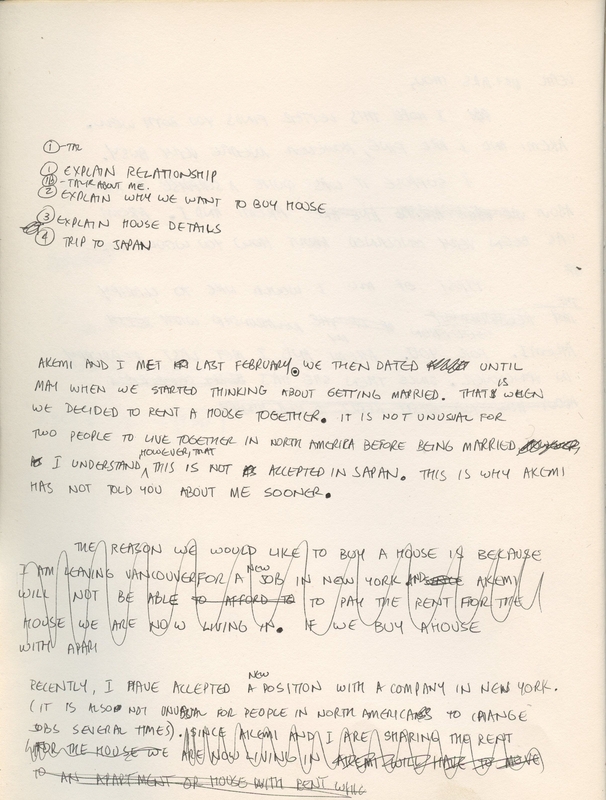 ① - TAL
① EXPLAIN RELATIONSHIP
①B - TALK ABOUT ME.
② EXPLAIN WHY WE WANT TO BUY HOUSE
③ EXPLAIN HOUSE DETAILS
④ TRIP TO JAPAN
AKEMI AND I MET LAST FEBRUARY. WE THEN DATED UNTIL
MAY WHEN WE STARTED THINKING ABOUT GETTING MARRIED. THAT IS WHEN
WE DECIDED TO RENT A HOUSE TOGETHER. IT IS NOT UNUSUAL FOR
TWO PEOPLE TO LIVE TOGETHER IN NORTH AMERICA BEFORE BEING MARRIED
HOWEVER, THAT
I UNDERSTAND THIS IS NOT ACCEPTED IN JAPAN. THIS IS WHY AKEMI
HAS NOT TOLD YOU ABOUT ME SOONER.
THE REASON WE WOULD LIKE TO BUY A HOUSE IS BECAUSE
NEW
I AM LEAVING VANCOUVER FOR A JOB IN NEW YORK AND AKEMI
WILL NOT BE ABLE TO AFFORD TO TO PAY THE RENT FOR THE
HOUSE WE ARE NOW LIVING IN. IF WE BUY A HOUSE
WITH APAR
NEW
RECENTLY, I HAVE ACCEPTED A POSITION WITH A COMPANY IN NEW YORK.
(IT IS ALSO NOT UNUSUAL FOR PEOPLE IN NORTH AMERICA TO CHANGE
JOBS SEVERAL TIMES). SINCE AKEMI AND I ARE SHARING THE RENT
FOR THE HOUSE WE ARE NOW LIVING IN AKEMI WOULD HAVE TO MOVE
TO AN APARTMENT OR HOUSE WITH RENT WHIC